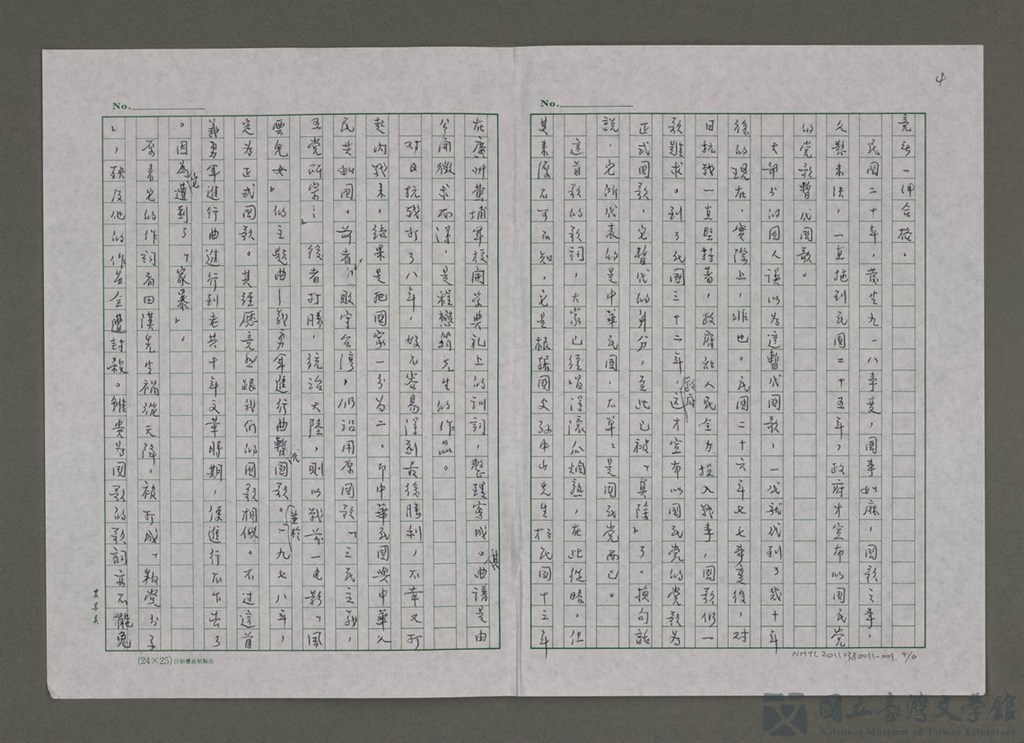 4
No.
竟無一件合格。
民國二十年，發生九一八事變，國事如麻，國歌之事，
又懸未決，一直拖到民國二十五年，政府才宣布以國民黨
的黨歌暫代國歌。
大部分的國人誤以為這暫代國歌，一代就代到了幾十年
後的現在，實際上，非也。民國二十六年七七事變後，對
日抗戰一直堅持著，政府和人民全力投入戰事，國歌仍一
歌難求。到了民國三十二年，政府這才宣布以國民黨的黨歌為
正式國歌，完暫代的身分，至此已被「真除」了。換句話
說，它所代表的是中華民國，不單單是國民黨而已。
這首歌的歌詞，大家已經唱得滾瓜爛熟，在此從略。但
其來源不可不知，它是根據國父孫中山先生於民國十三年
No.
在廣州黃埔軍校開學典禮上的訓詞，整理寫成。其曲譜是由
公開徵求而得，是程懋筠先生的作品。
對日抗戰打了八年，好不容易得到最後勝利，不幸又打
起內戰來。結果是把國家一分為二，即中華民國與中華人
民共和國。前者，敗守台灣，仍沿用原國歌「三民主義，
吾黨所宗…」後者打勝，統治大陸，則以戰前一電影「風
雲兒女」的主題曲—義勇軍進行曲暫代國歌。並於一九七八年，
定為正式國歌。其經歷竟與跟我們的國歌相似。不過這首
義勇軍進行曲進行到老共十年文革時期，便進行不下去了
。因為它遭到了「家暴」。
原來它的作詞者田漢先生禍從天降，被打成「叛黨分子
」，殃及他的作品全遭封殺。雖貴為國歌的歌詞亦不能免
(24×25)
NMTL20110380011-001
國立臺灣文學館
National Museum of Taiwan Literature